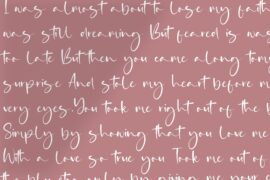 I was almost about to lose my faith
was still dreaming But feared is was
too late But then you came along to my
surprise And stole my heart before m
very eyes. You took me right out of the
Simply by showing that you love me
With a love so true You Took me out of